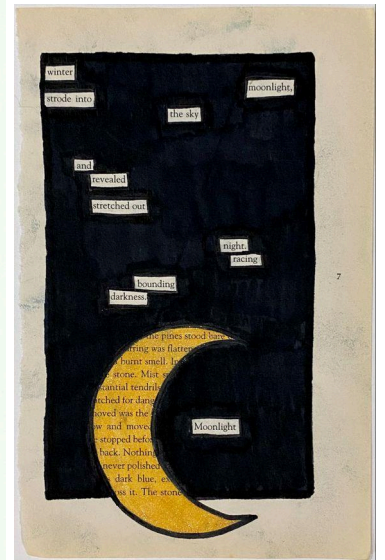 winter
moonlight,
strode into
the sky
and
revealed
stretched out
night.
racing
7
bounding
darkness.
the pines stood bare
rring was flatten
burnt smell. In
stone. Mist s
stantial tendrils
tched for dang
noved was the
w and move
e stopped befo
back. Nothing
never polished
dark blue, ex
oss it. The stone
Moonlight